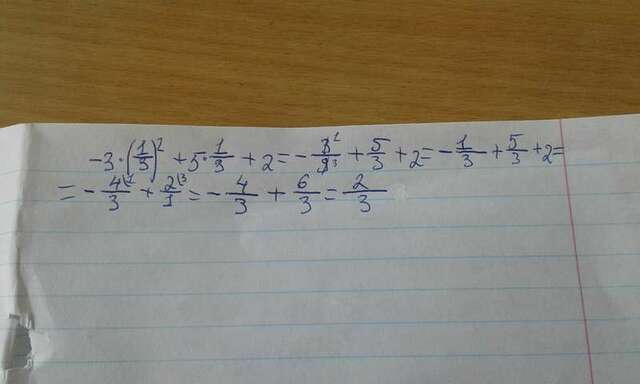 -3·(1/3)² + 5·1/3 + 2 = - 3¹/9³ + 5/3 + 2 = - 1/3 + 5/3 + 2 =
= - 4\¹/3 + 2\³/1 = - 4/3 + 6/3 = 2/3